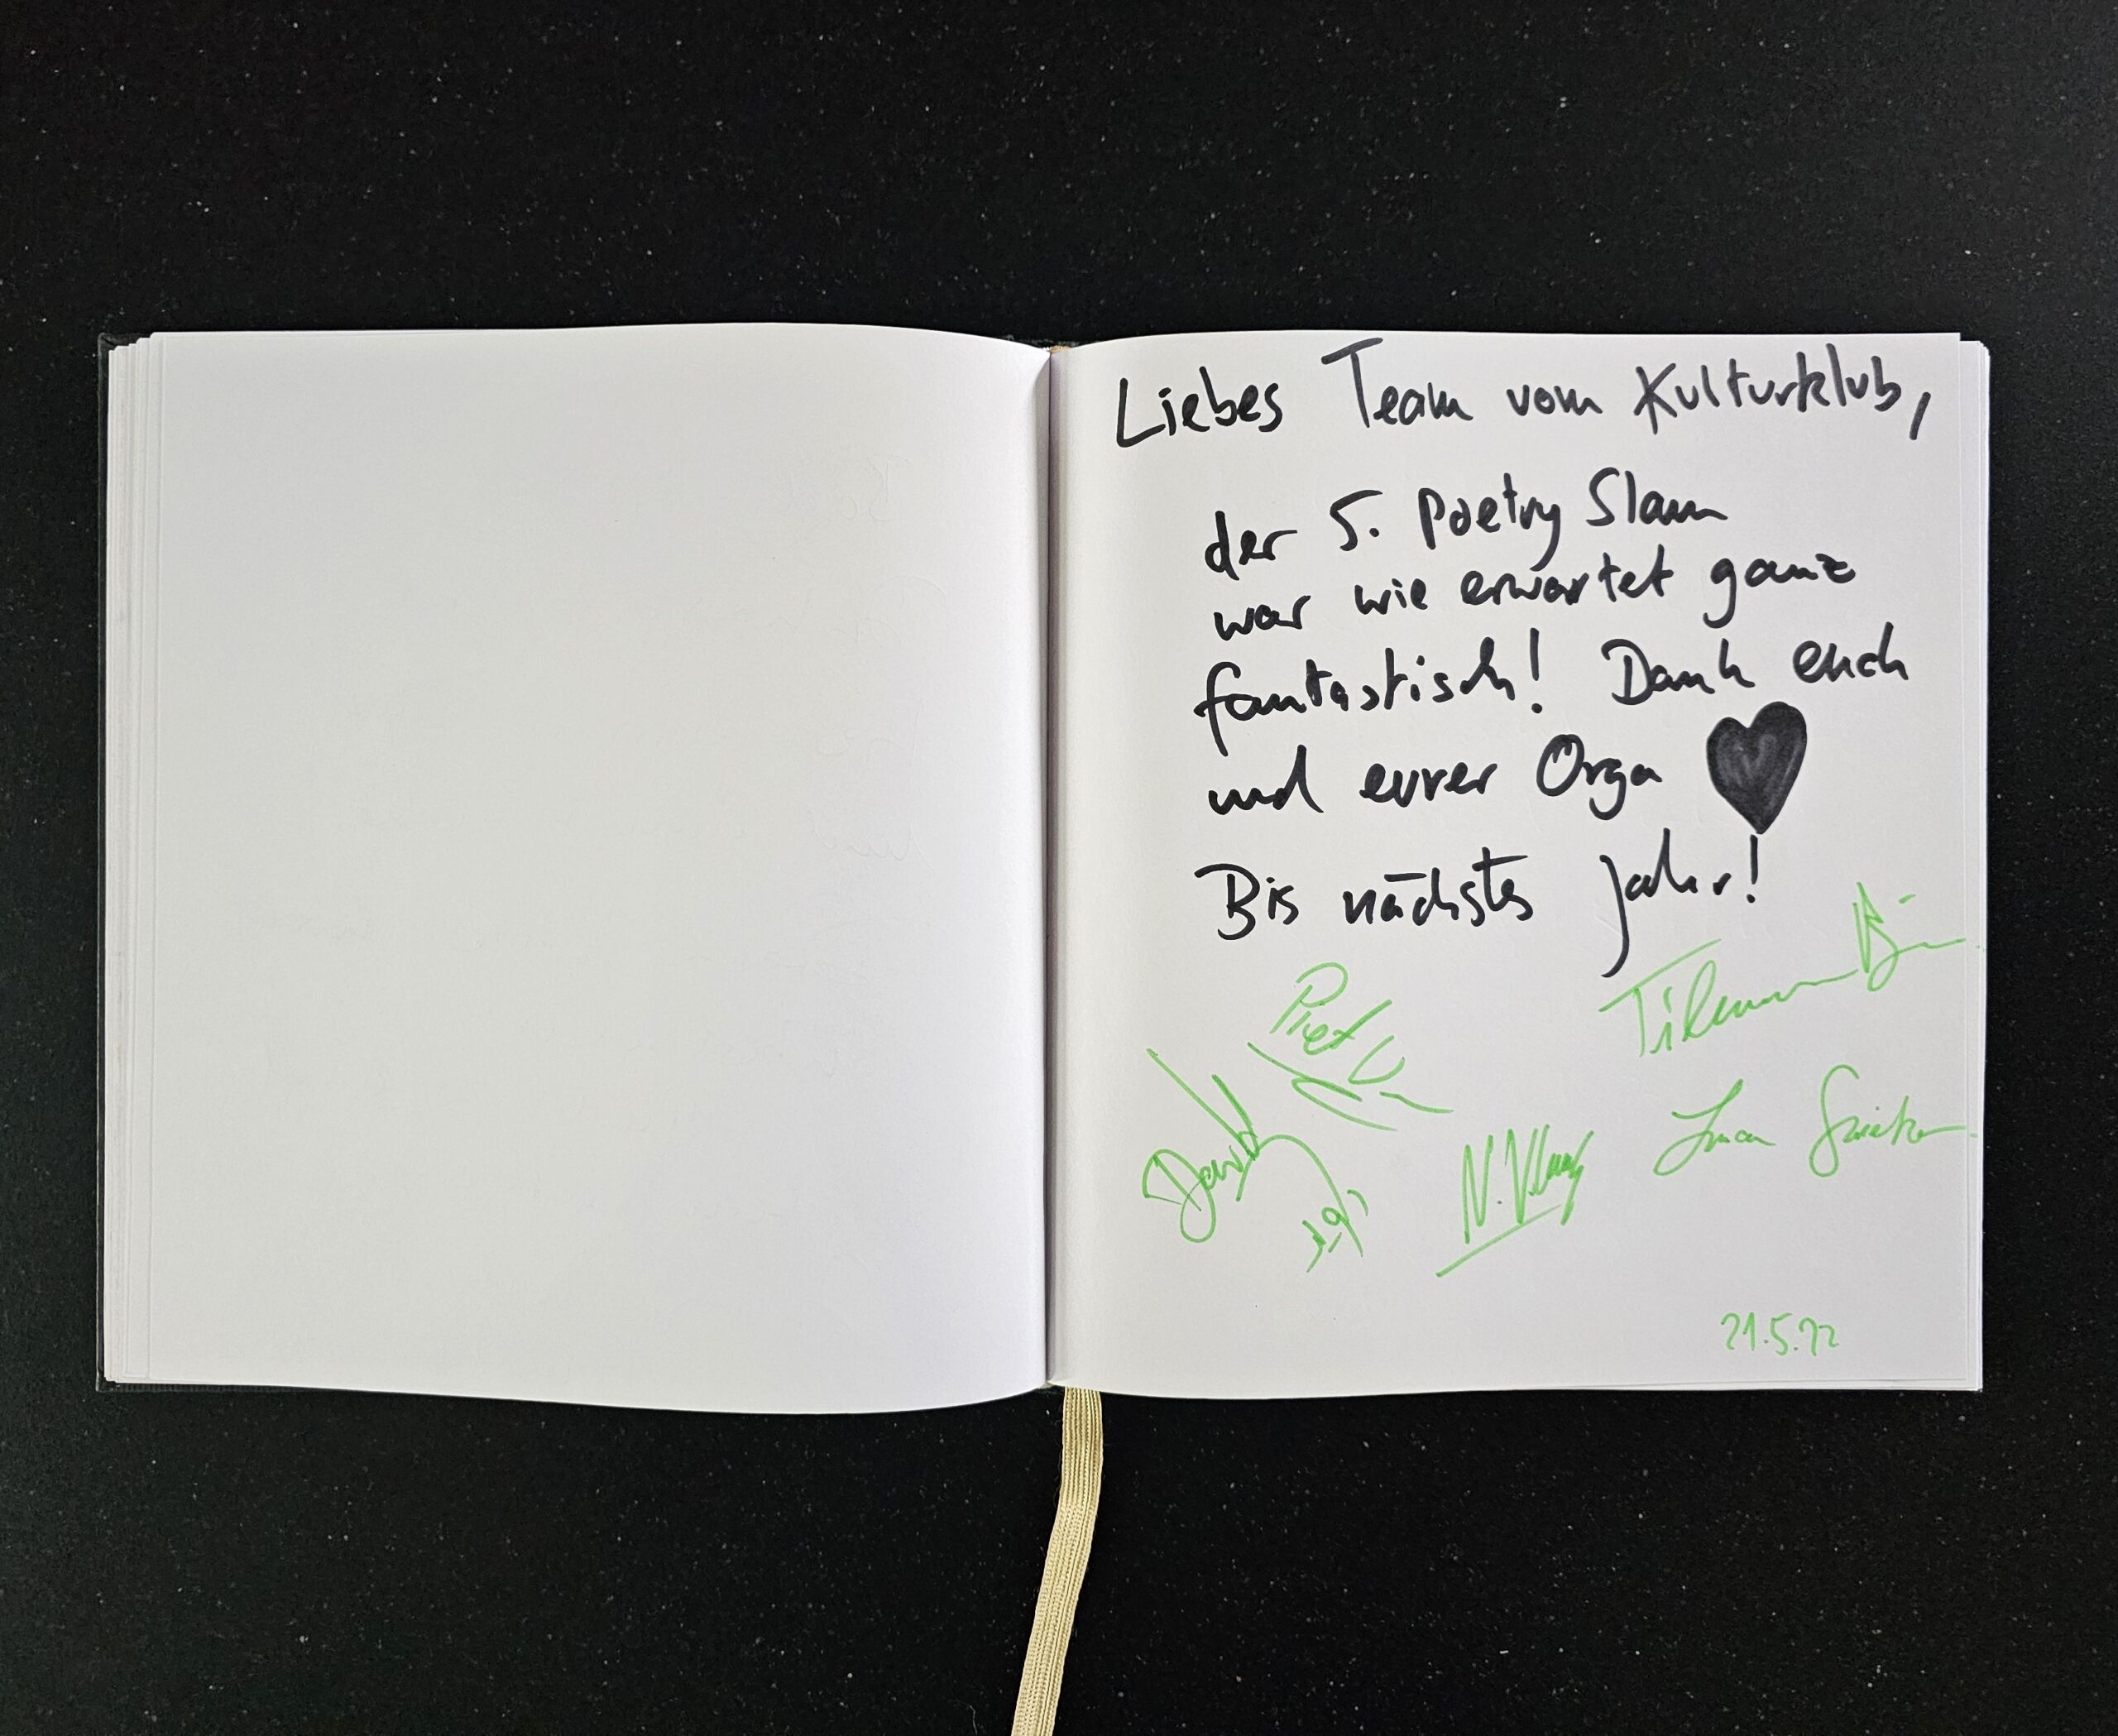 Liebes Team vom Kulturklub,
der 5. Poetry Slam
war wie erwartet ganz
fantastisch! Dank euch
und eurer Orga
Bis nächstes Jahr!
Piet
David
N.
21.5.22